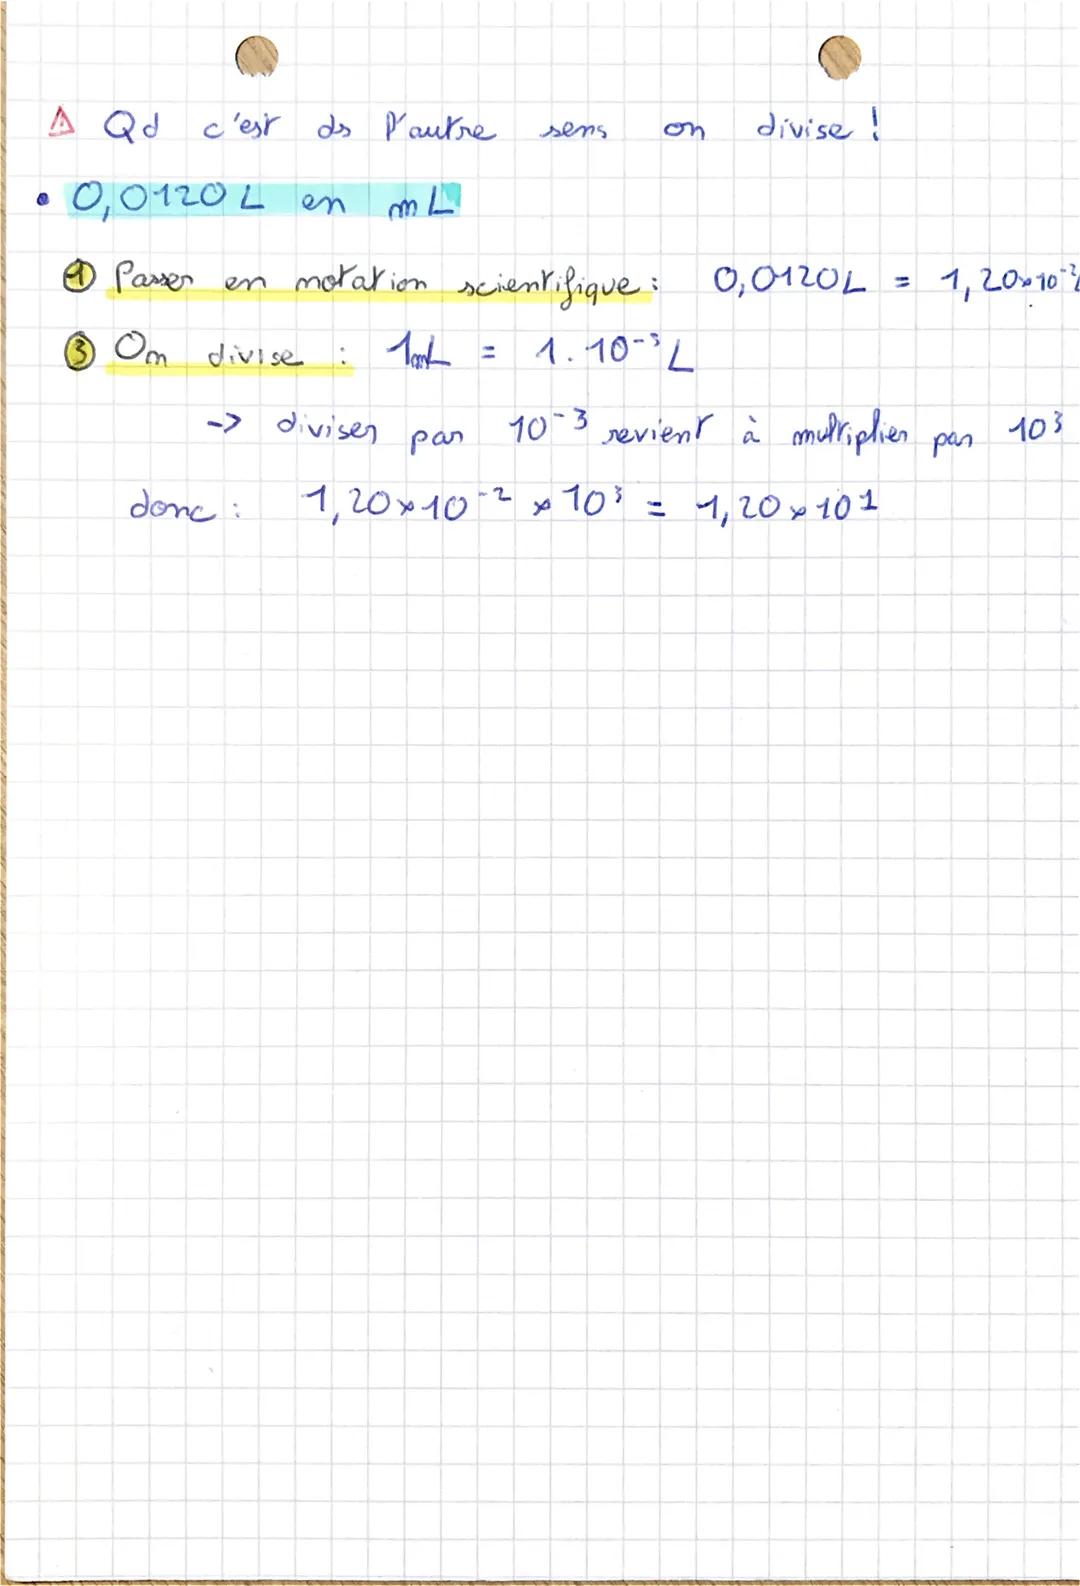 ⚠ Qd c'est ds l'autre sens on divise !
• 0,0120 L en mL
① Passer en notation scientifique : 0,0120L = 1,20×10⁻²L
③ On divise : 1mL = 1.10⁻³L
-> diviser par 10⁻³ revient à multiplier par 10³
donc : 1,20×10⁻² × 10³ = 1,20×10¹